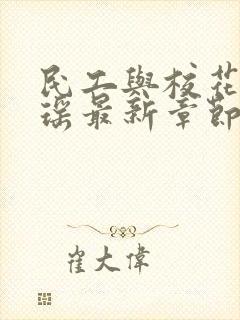 民工與校花
瑤最新章節
崔大偉